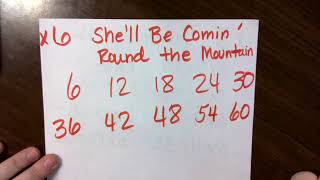 x6 She'll Be Comin'
Round the Mountain
6 12 18 24 30
36 42 48 54 60